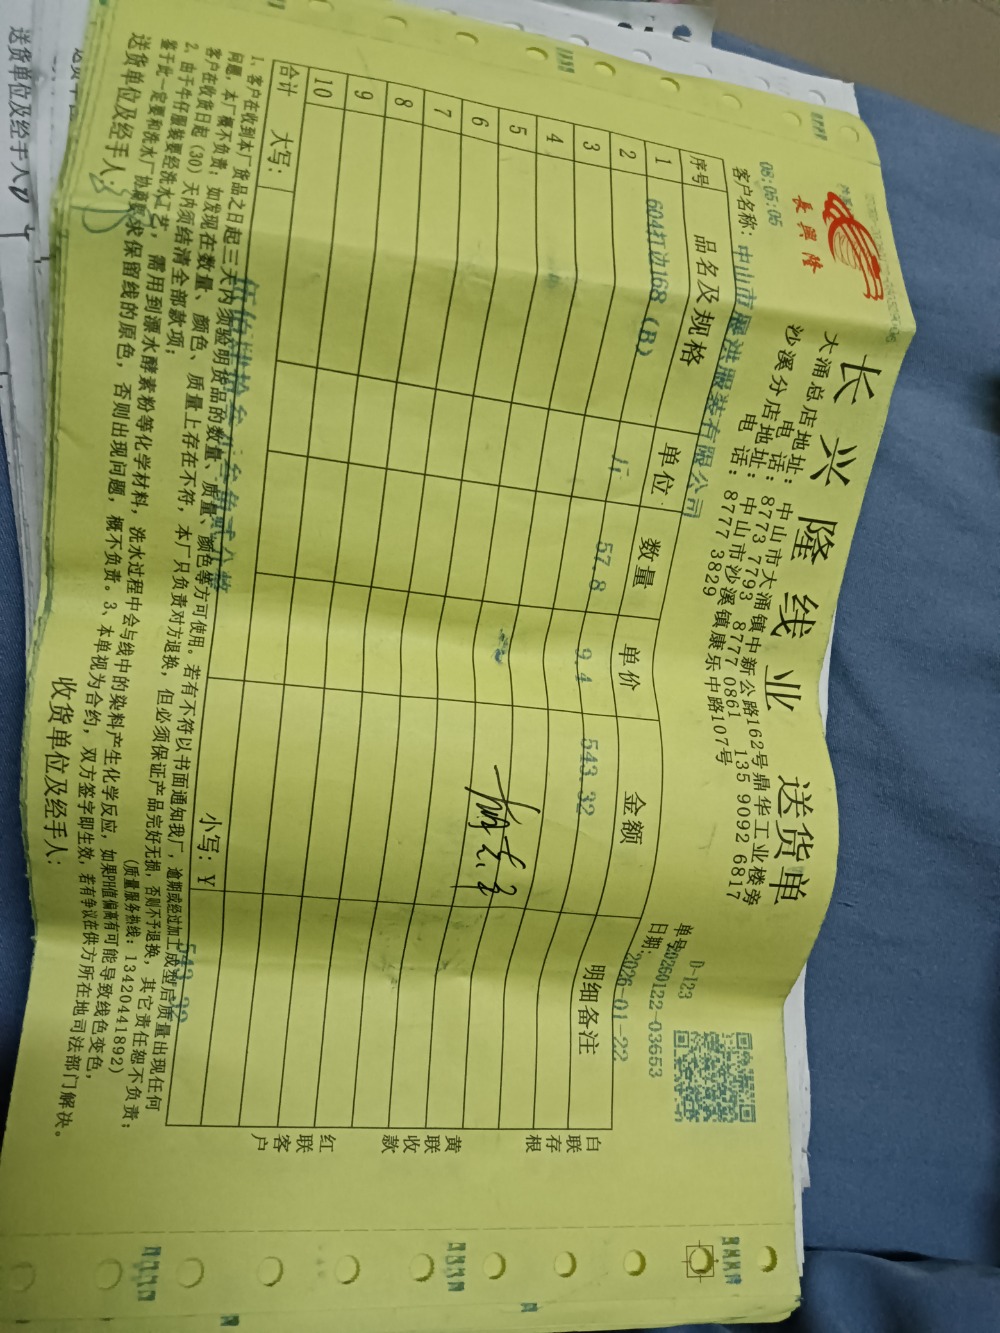 長興隆
长兴隆线业 送货单
大涌总店地址：中山市大涌镇中新公路162号鼎华工业楼旁
电话：8773 7793 8777 0861 135 9092 6817
沙溪分店地址：中山市沙溪镇康乐中路107号
电话：8777 3829
08:05:05
D-123
单号20260122-03653
客户名称：中山市展洪服装有限公司
日期：2026-01-22
序号 品名及规格 单位 数量 单价 金额 明细备注
1 604打边168（B） 斤 57.8 9.4 543.32
2
3
4
5
6
7
8
9
10
合计 大写：伍佰肆拾叁元叁角贰分整 小写：￥543.32
1、客户在收到本厂货品之日起三天内须验明货品的数量、质量、颜色等方可使用。若有不符以书面通知我厂，逾期或经过加工成型后质量出现任何
问题，本厂概不负责；如发现在数量、颜色、质量上存在不符，本厂只负责对方退换，但必须保证产品完好无损，否则不予退换，其它责任恕不负责；
客户在收货日起（30）天内须结清全部款项； （质量服务热线：13420441892）
2、由于牛仔服装要经洗水工艺，需用到漂水酵素粉等化学材料，洗水过程中会与线中的染料产生化学反应，如果PH值偏离有可能导致线色变色，
鉴于此一定要和洗水厂协商要求保留线的原色，否则出现问题，概不负责。3、本单视为合约，双方签字即生效，若有争议在供方所在地司法部门解决。
送货单位及经手人： 收货单位及经手人：
白联存根
黄联收款
红联客户
送货单位及经手人